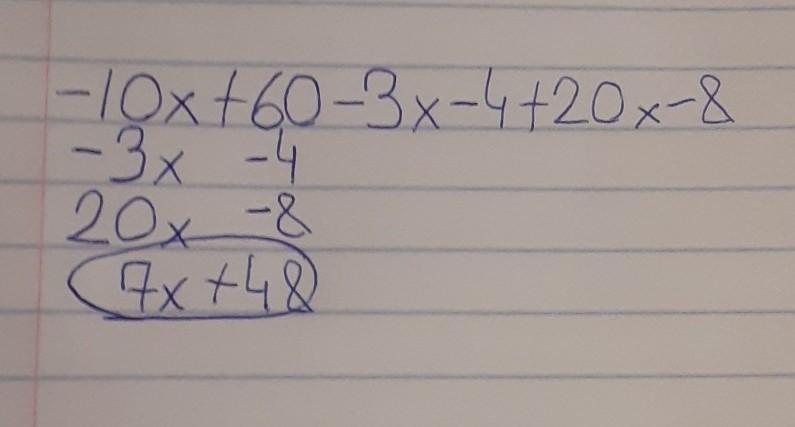 -10x+60-3x-4+20x-8
-3x -4
20x -8
7x+48